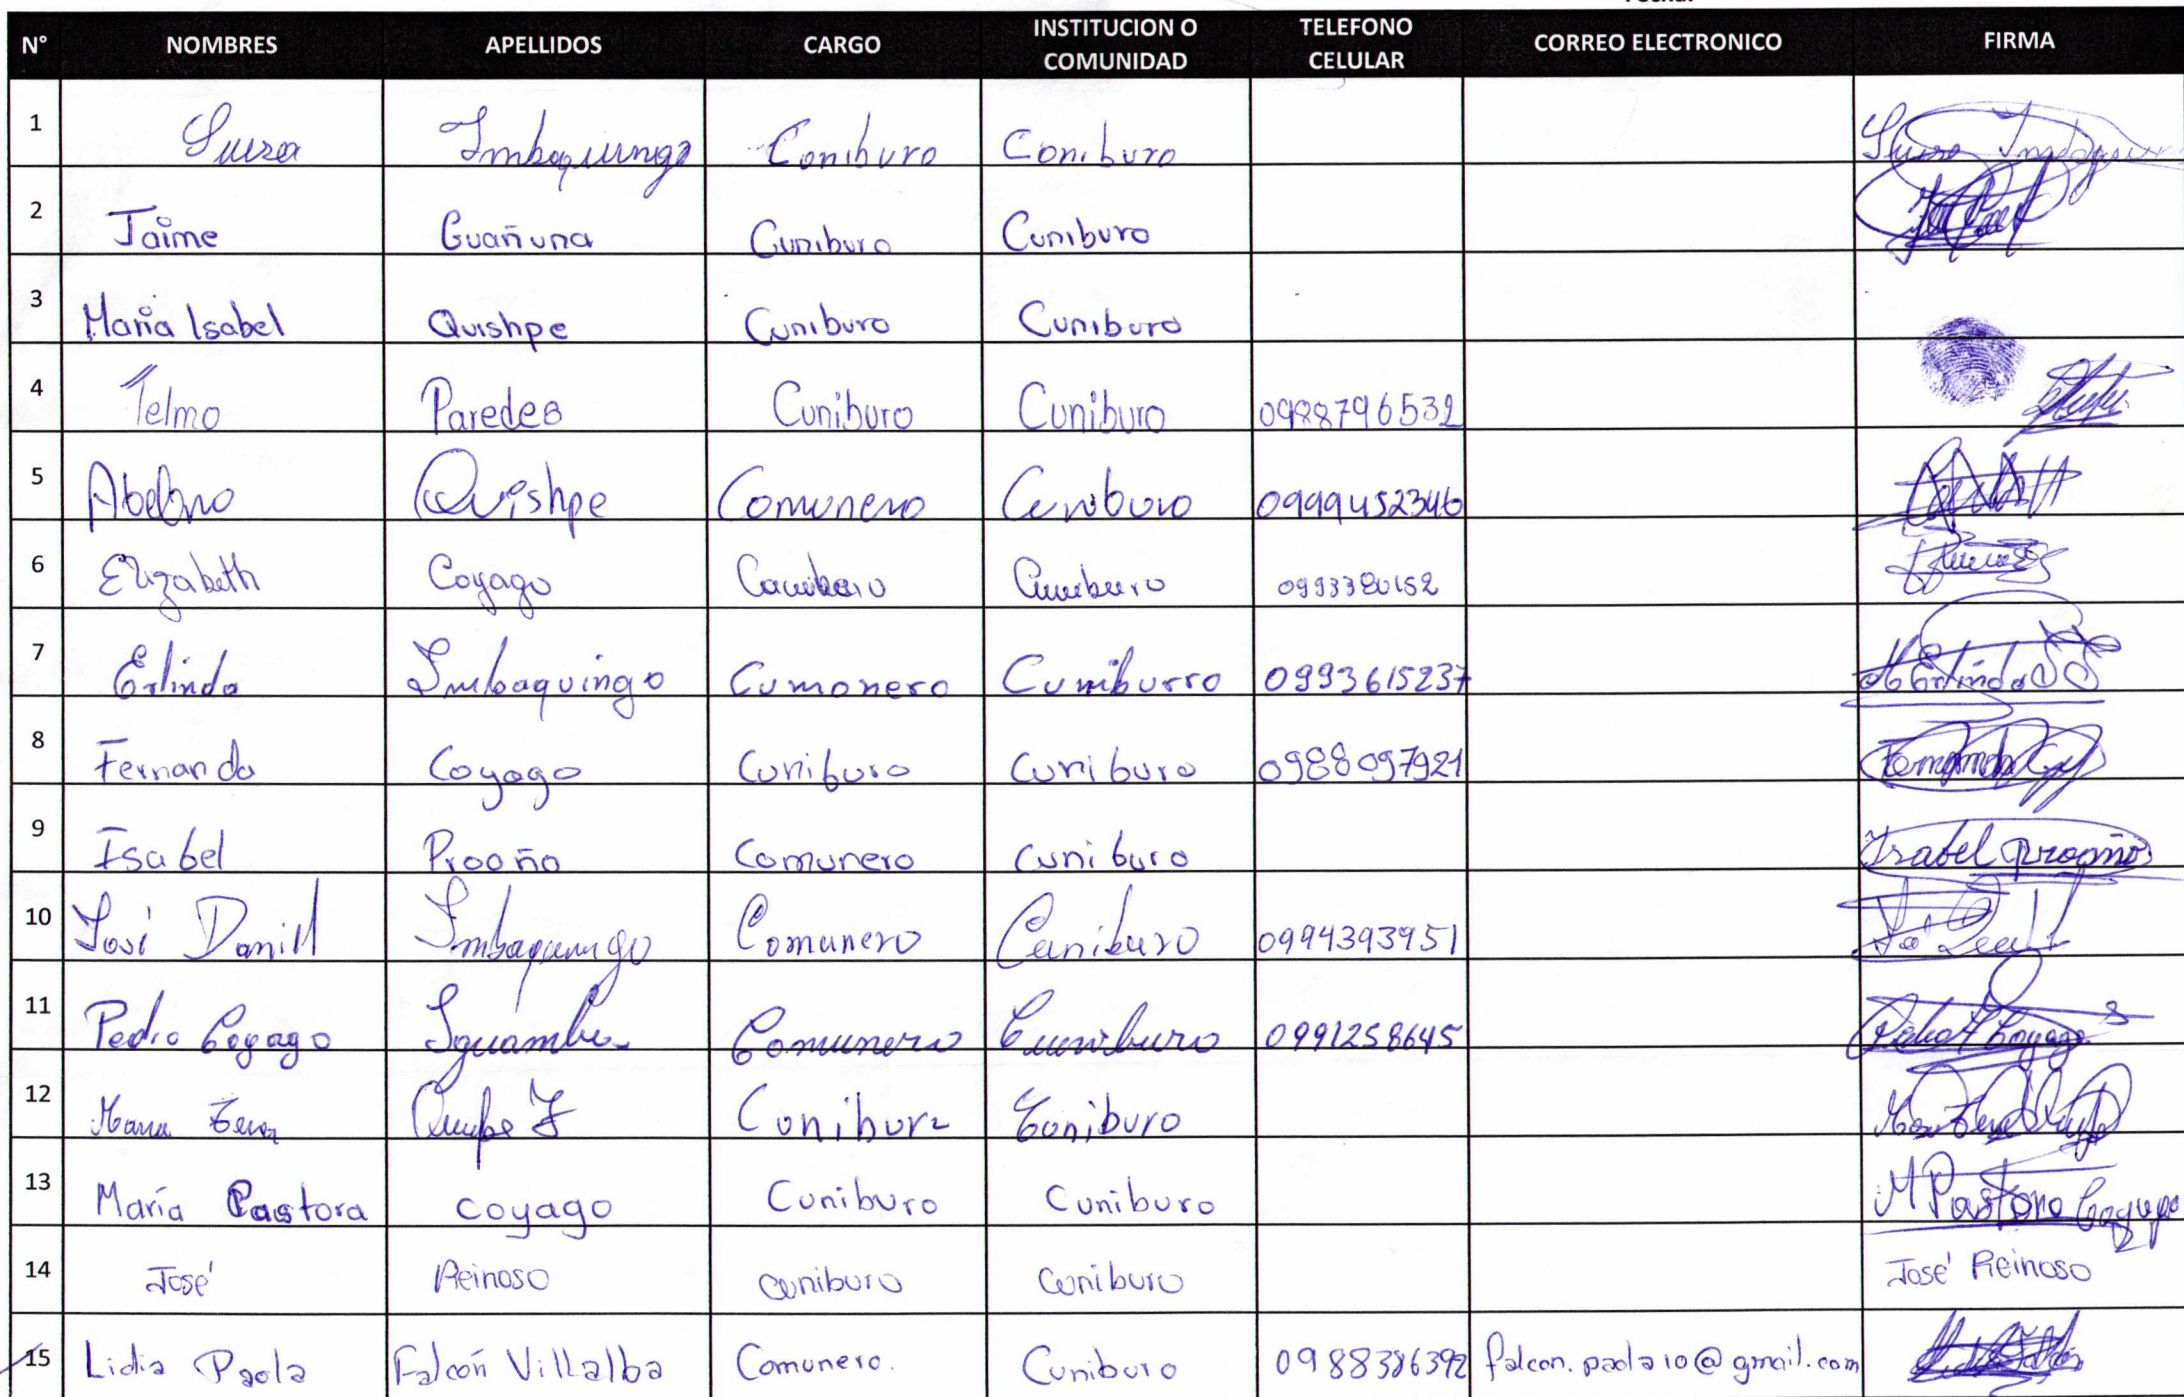 N° NOMBRES APELLIDOS CARGO INSTITUCION O COMUNIDAD TELEFONO CELULAR CORREO ELECTRONICO FIRMA
1 Imbaquingo Coniburo Coniburo
2 Jaime Guañuna Cuniburo Cuniburo
3 Maria Isabel Quishpe Cuniburo Cuniburo
4 Telmo Paredes Cuniburo Cuniburo 0988796532
5 Abelino Quishpe Comunero Cuniburo 0999452346
6 Elizabeth Coyago Cuniburo 0993380152
7 Erlinda Imbaquingo Cumonero Cuniburro 0993615237 Erlinda
8 Fernando Coyago Cuniburo Cuniburo 0988097921 Fernando
9 Isabel Prooño Comunero cuniburo Isabel Prooño
10 José Daniel Imbaquingo Comunero Cuniburo 0994393951
11 Pedro Coyago Iguamba Comunero Cuniburo 0991258645 Coyago
12 Coniburo Coniburo
13 María Pastora coyago Cuniburo Cuniburo M Pastora Coyago
14 José Reinoso Cuniburo Cuniburo José Reinoso
15 Lidia Paola Falcón Villalba Comunero. Cuniburo 0988386392 falcon.paola10@gmail.com